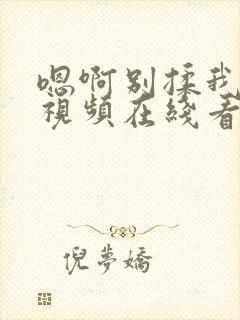 嗯啊别揉我
視頻在綫看
倪夢嬌